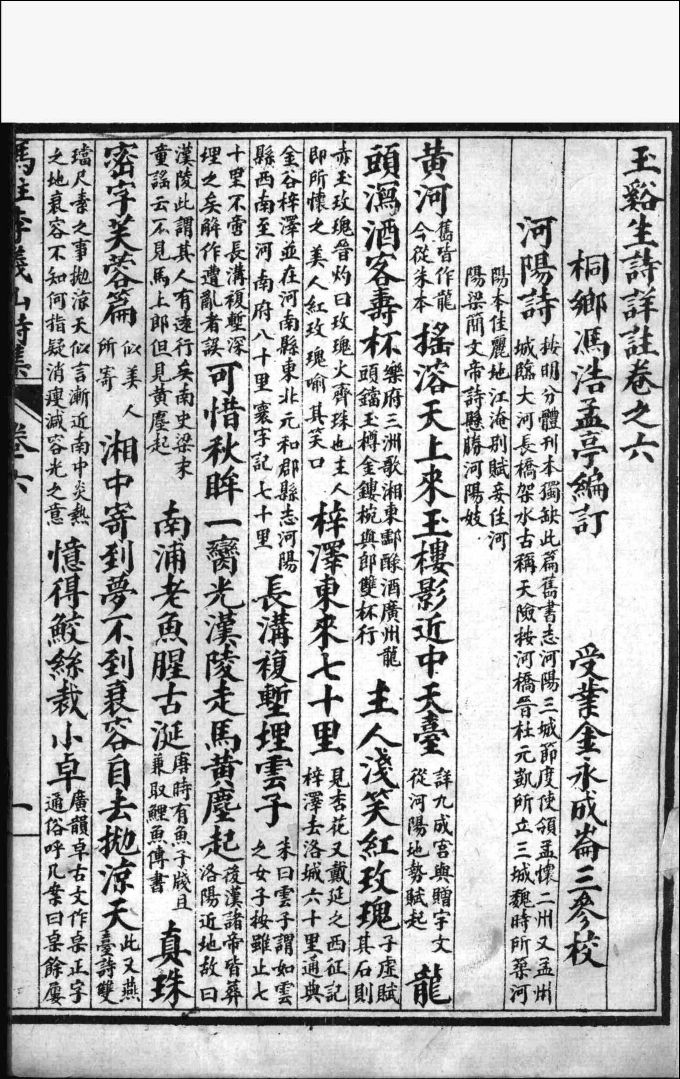 玉谿生詩詳註卷之六
桐鄉馮浩孟亭編訂　受業金永成崙三參校
河陽詩
按明分體刊本獨缺此篇舊書志河陽三城節度使領孟懷二州又孟州
城臨大河長橋架水古稱天險按河橋晉杜元凱所立三城魏時所築河
陽本佳麗地江淹別賦妾住河
陽梁簡文帝詩懸勝河陽妓
黃河
舊皆作龍
今從朱本
搖溶天上來玉樓影近中天臺
詳九成宮與贈宇文
從河陽地勢賦起
龍
頭瀉酒客壽杯
樂府三洲歌湘東酃醁酒廣州龍
頭鐺玉樽金鏤椀與郎雙杯行
主人淺笑紅玫瑰
子虛賦
其石則
赤玉玫瑰晉灼曰玫瑰火齊珠也主人
即所懷之美人紅玫瑰喻其笑口
梓澤東來七十里
見杏花又戴延之西征記
梓澤去洛城六十里通典
金谷梓澤並在河南縣東北元和郡縣志河陽
縣西南至河南府八十里寰宇記七十里
長溝複塹埋雲子
朱曰雲子謂如雲
之女子按雖止七
十里不啻長溝複塹深
埋之矣解作遭亂者誤
可惜秋眸一臠光漢陵走馬黃塵起
後漢諸帝皆葬
洛陽近地故曰
漢陵此謂其人有遠行矣南史梁末
童謠云不見馬上郎但見黃塵起
南浦老魚腥古涎
唐時有魚子牋且
兼取鯉魚傳書
真珠
密字芙蓉篇
似美人
所寄
湘中寄到夢不到衰容自去拋涼天
此又燕
臺詩雙
璫尺素之事拋涼天似言漸近南中炎熱
之地衰容不知何指疑消瘦減容光之意
憶得鮫絲裁小卓
廣韻卓古文作桌正字
通俗呼几案曰桌餘屢
馮註李義山詩集　卷六　一